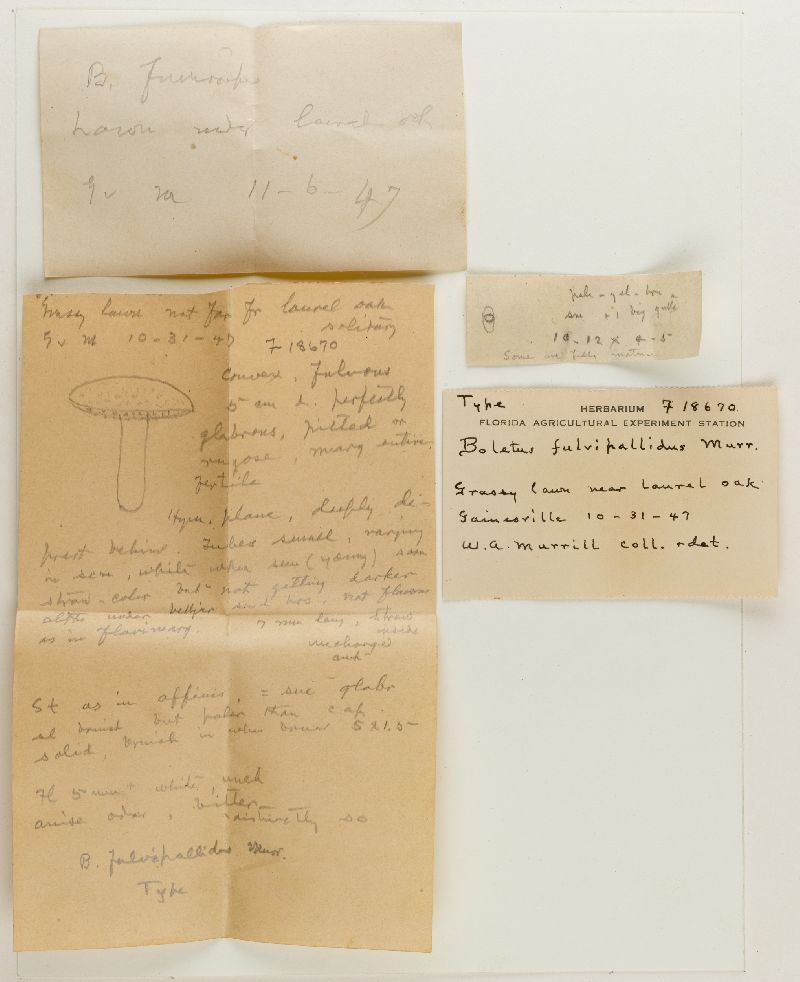 B.
Lawn under laurel oak
Gv m 11-6-47
Grassy lawn not far fr laurel oak
solitary
Gv M 10-31-47 F 18670
Convex, fulvous
5 cm d. perfectly
glabrous, pitted or
rugose, marg entire
fertile
Hym. plane, deeply de-
prest behind. Tubes small, varying
in size, white when (young) soon
straw-color but not getting darker
altho under not flavous
as in flavimarg. 7 mm long, straw
inside
unchanged
St as in affinis, = sue glabr
but paler than cap.
solid, 5 x 1.5
Fl 5 mm + white, unch
anise odor, bitter
distinctly so
B. fulvipallidus Murr.
Type
pale-yel-brn
sm 1 big gutt
10-12 x 4-5
Some are fully mature
Type HERBARIUM F 18670.
FLORIDA AGRICULTURAL EXPERIMENT STATION
Boletus fulvipallidus Murr.
Grassy lawn near laurel oak
Gainesville 10-31-47
W.A. Murrill coll. + det.